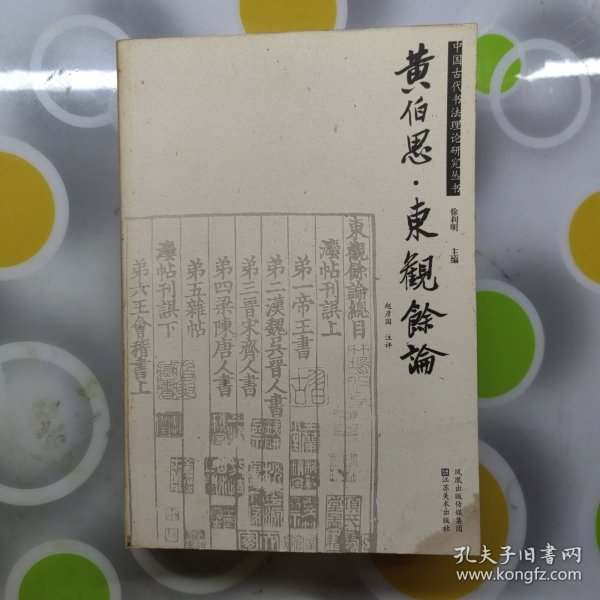 中国古代书法理论研究丛书
徐利明 主编
黄伯思·東觀餘論
赵彦国 注评
東觀餘論總目
灋帖刊誤上
第一帝王書
第二漢魏吳晉人書
第三晉宋齊人書
第四梁陳唐人書
第五雜帖
灋帖刊誤下
第六王會稽書上
凤凰出版传媒集团
江苏美术出版社
孔夫子旧书网
www.kongfz.com